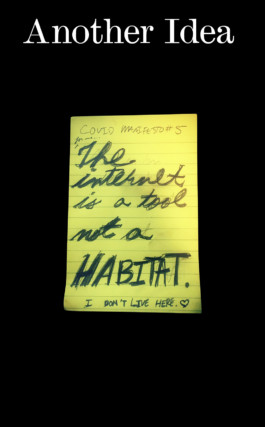 Another Idea
COVID MANIFESTO #5
for me...
The
internet
is a tool
not a
HABITAT.
I DON'T LIVE HERE. ♡